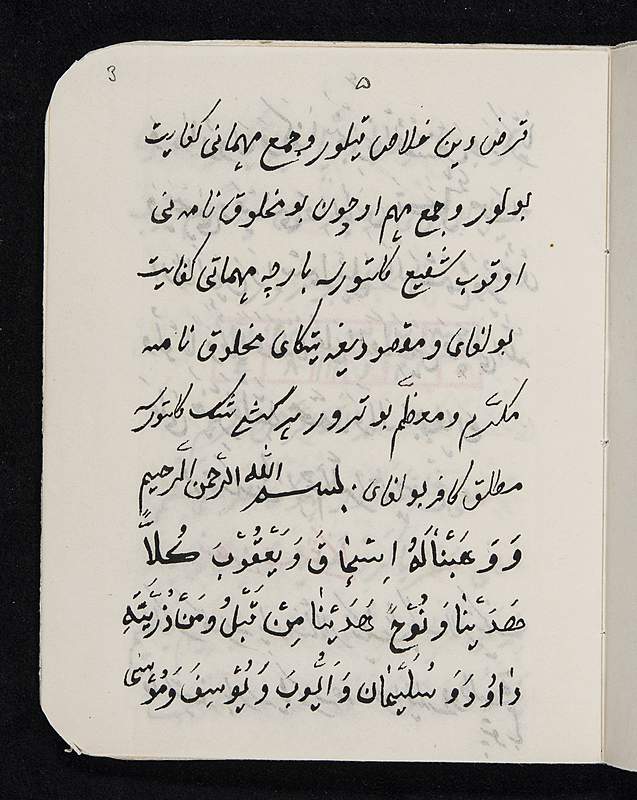 3
۵
قرض دین خلاص قیلور و جمع مهماتی کفایت
بولور و جمع مهم اوچون بو مخلوق نامه نی
اوقوب شفیع کلتورسه بارچه مهماتی کفایت
بولغای و مقصودیغه یتکای مخلوق نامه
مکرّم و معظّم بو تورور هر کشی شک کلتورسه
مطلق کافر بولغای. بسم الله الرحمن الرحیم
وَوَهَبْنَالَهُ اِسْحٰاقَ وَيَعْقُوْبَ كُلاًّ
هَدَيْنَا وَنُوْحً هَدَيْنٰا مِنْ قَبْلُ وَمِنْ ذُرِّيَّتِهِ
دٰاوُدَ وَ سُلَيْمٰان وَاَيُّوبَ وَيُوْسِفَ وَمُوْسٰى